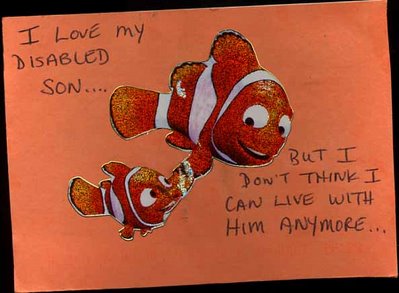 I LOVE my
DISABLED
SON....
BUT I
DON'T THINK I
CAN LIVE WITH
HIM ANYMORE...